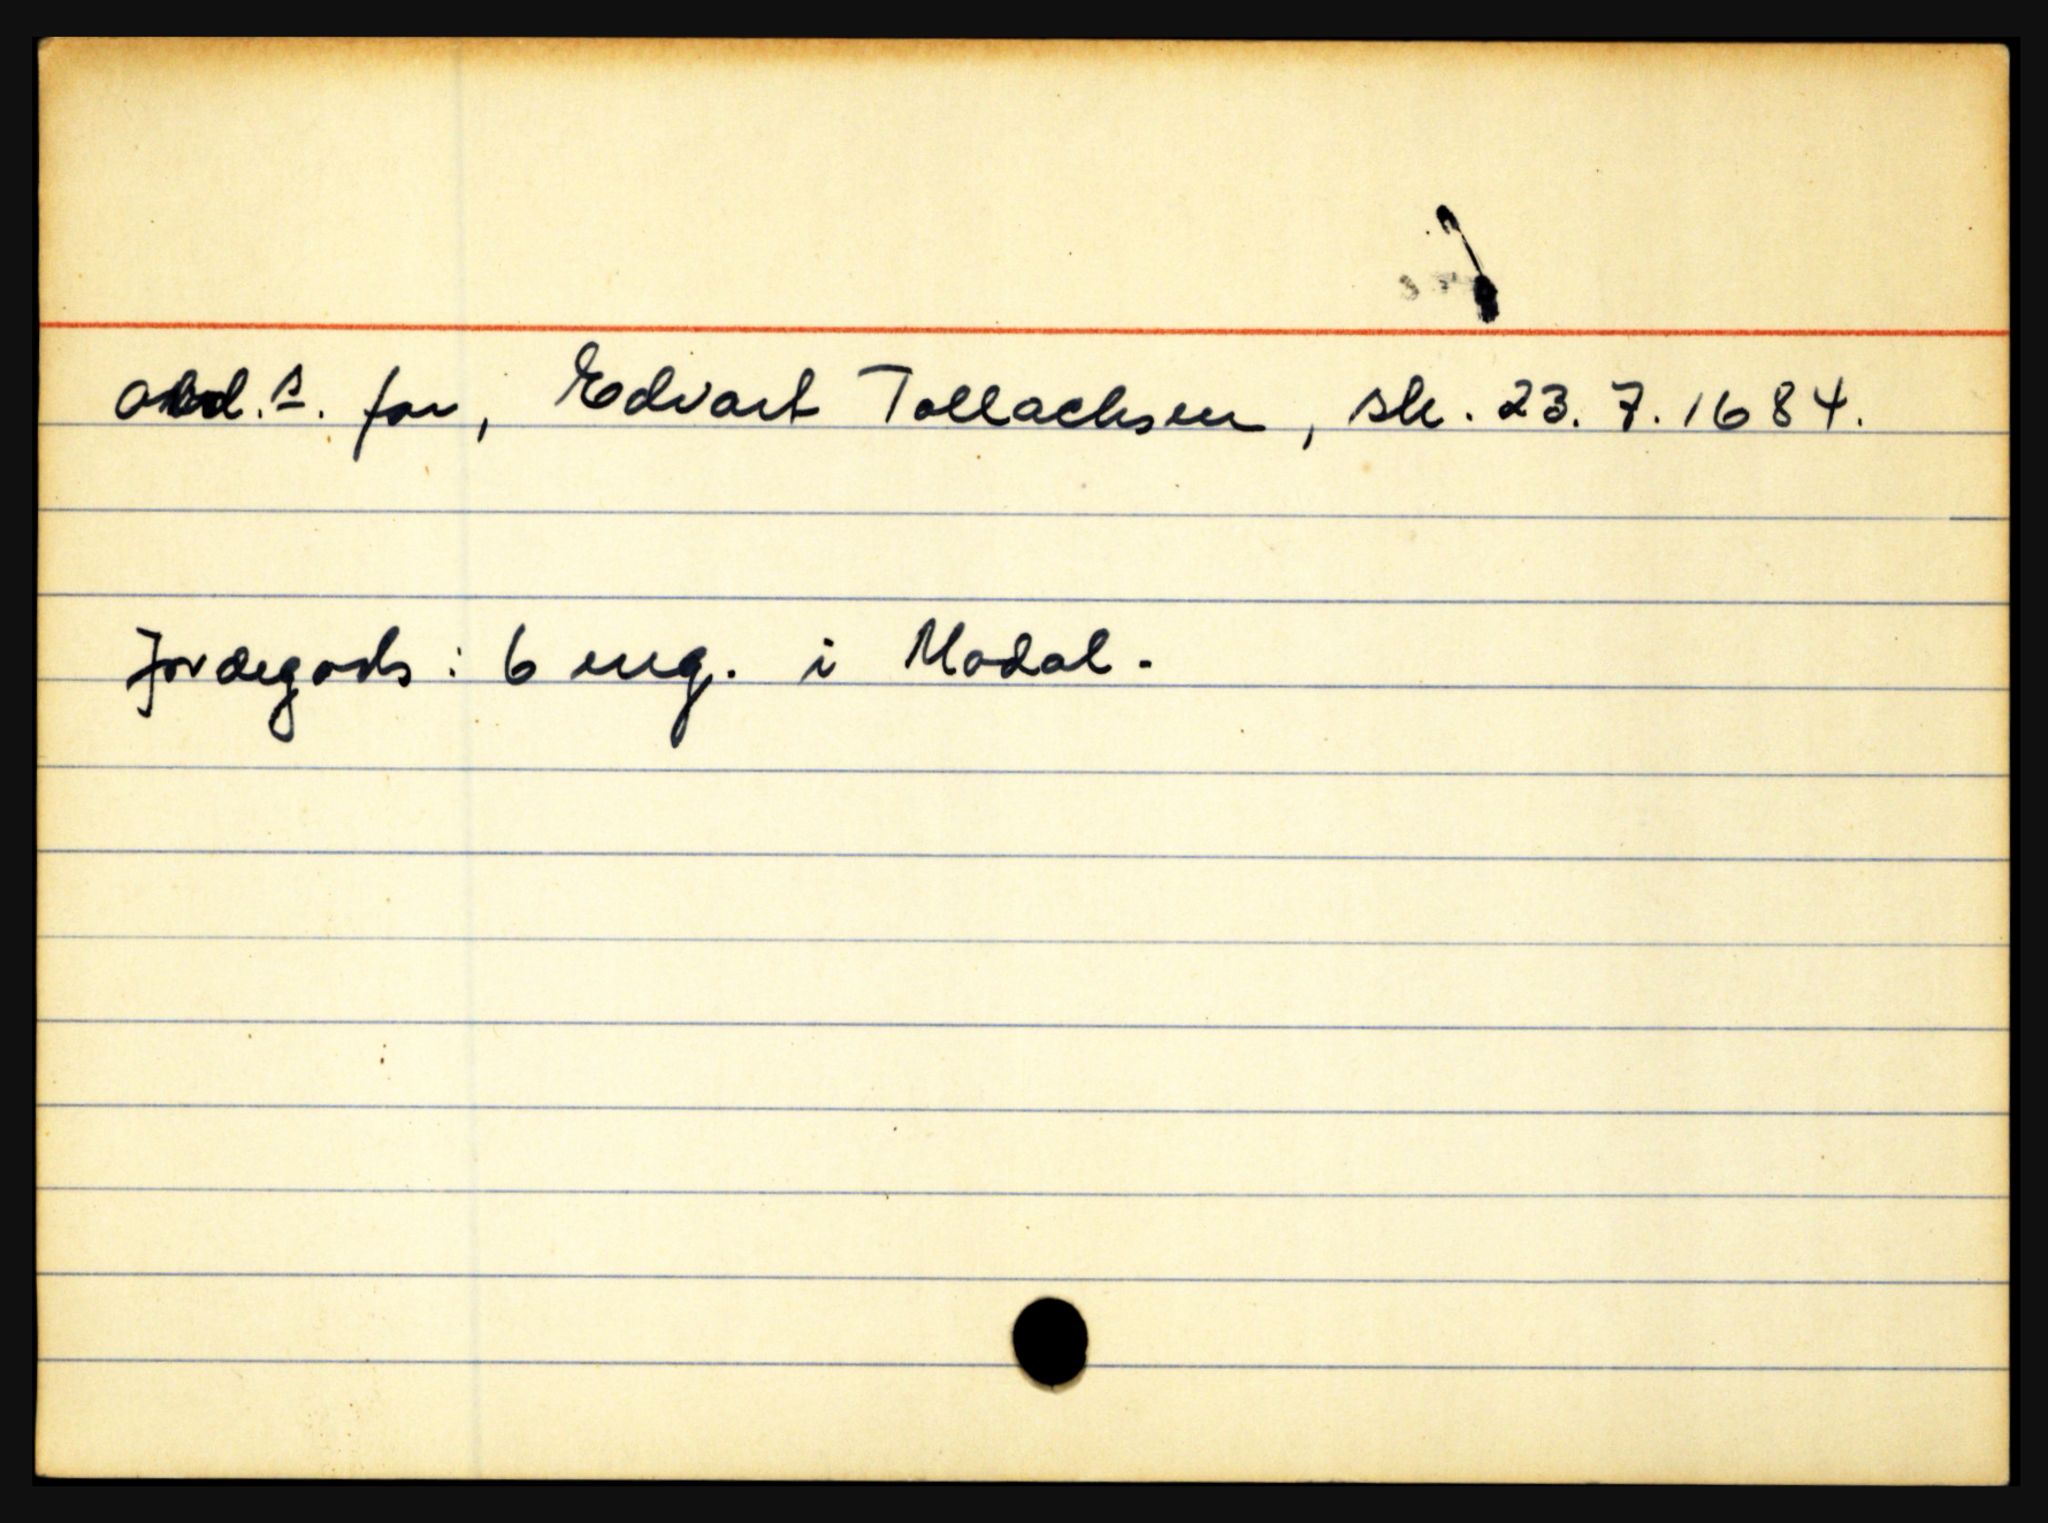 far, Edvart Tollachsen, sk. 23. 7. 1684.
Jordegods: 6 eng. i Modal.